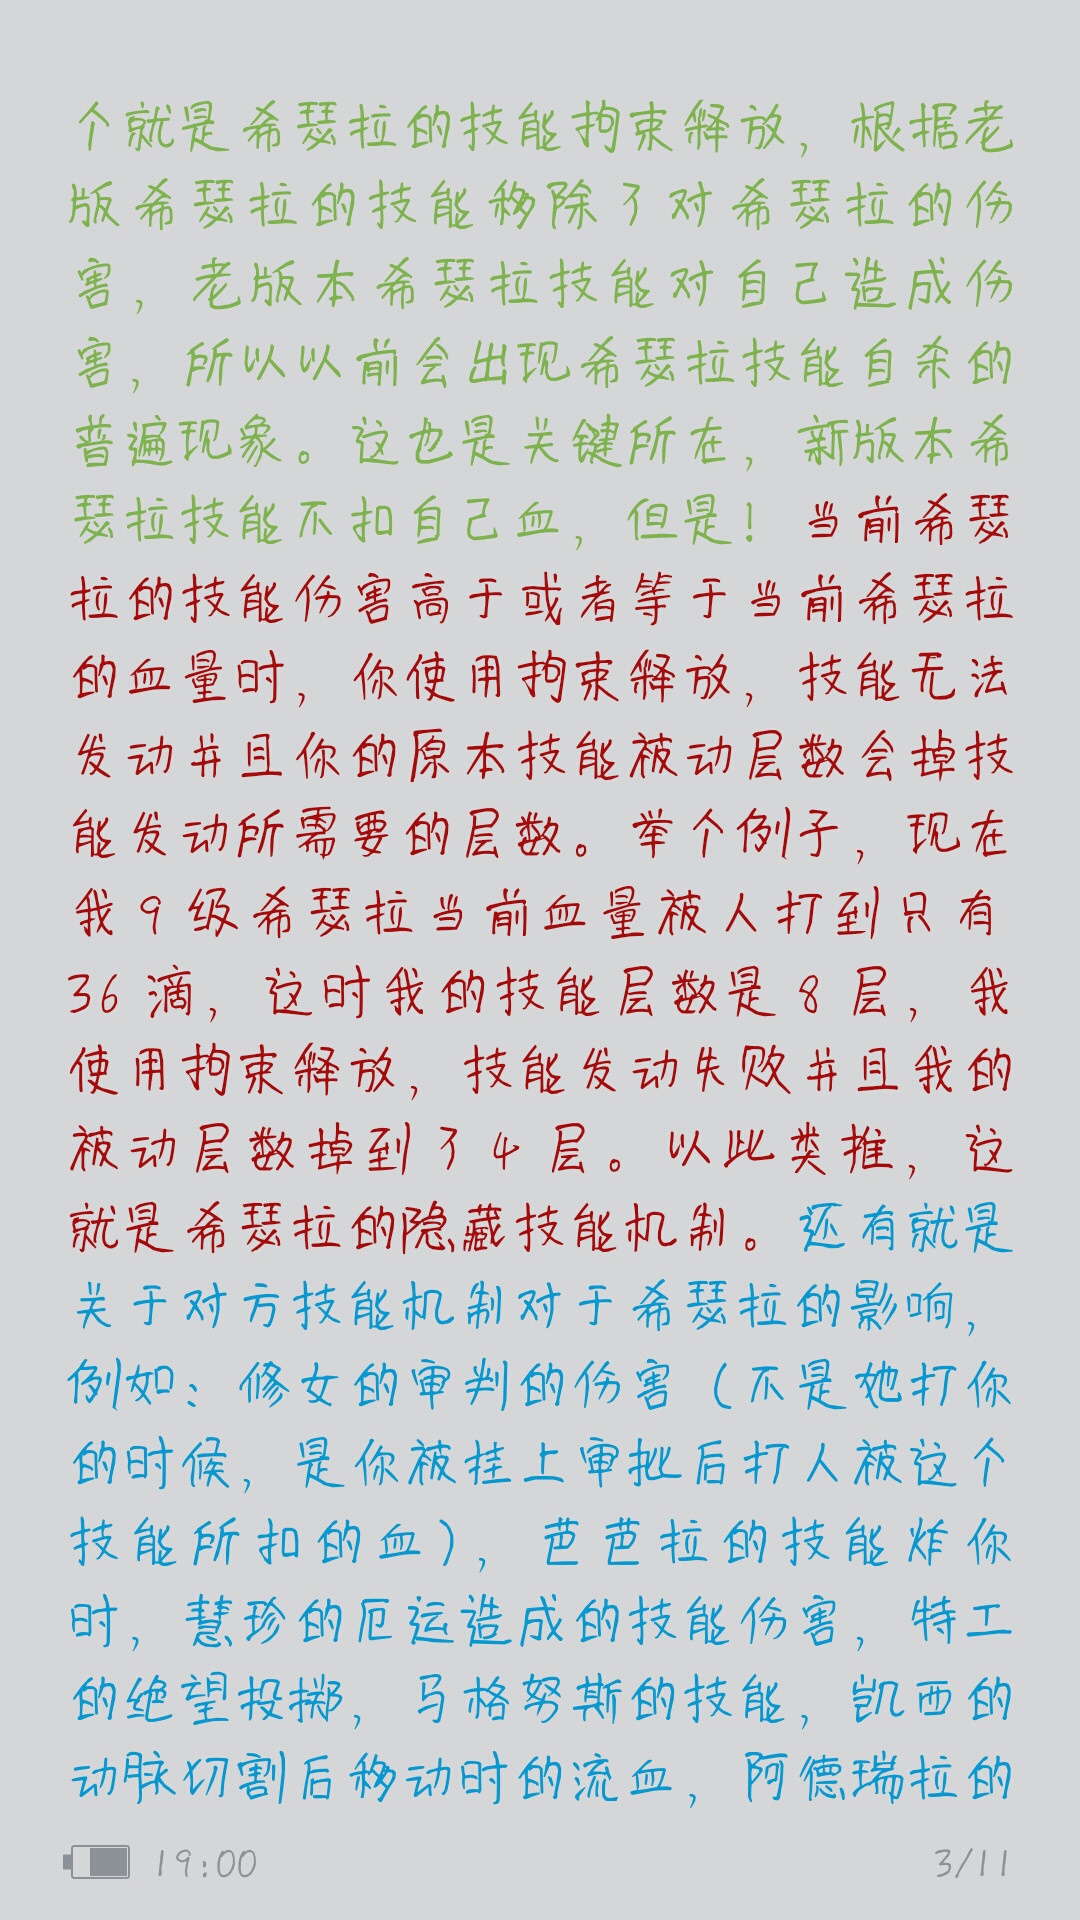 个就是希瑟拉的技能拘束释放，根据老
版希瑟拉的技能移除了对希瑟拉的伤
害，老版本希瑟拉技能对自己造成伤
害，所以以前会出现希瑟拉技能自杀的
普遍现象。这也是关键所在，新版本希
瑟拉技能不扣自己血，但是！当前希瑟
拉的技能伤害高于或者等于当前希瑟拉
的血量时，你使用拘束释放，技能无法
发动并且你的原本技能被动层数会掉技
能发动所需要的层数。举个例子，现在
我9级希瑟拉当前血量被人打到只有
36滴，这时我的技能层数是8层，我
使用拘束释放，技能发动失败并且我的
被动层数掉到了4层。以此类推，这
就是希瑟拉的隐藏技能机制。还有就是
关于对方技能机制对于希瑟拉的影响，
例如：修女的审判的伤害（不是她打你
的时候，是你被挂上审批后打人被这个
技能所扣的血），芭芭拉的技能炸你
时，慧珍的厄运造成的技能伤害，特工
的绝望投掷，马格努斯的技能，凯西的
动脉切割后移动时的流血，阿德瑞拉的
19:00
3/11